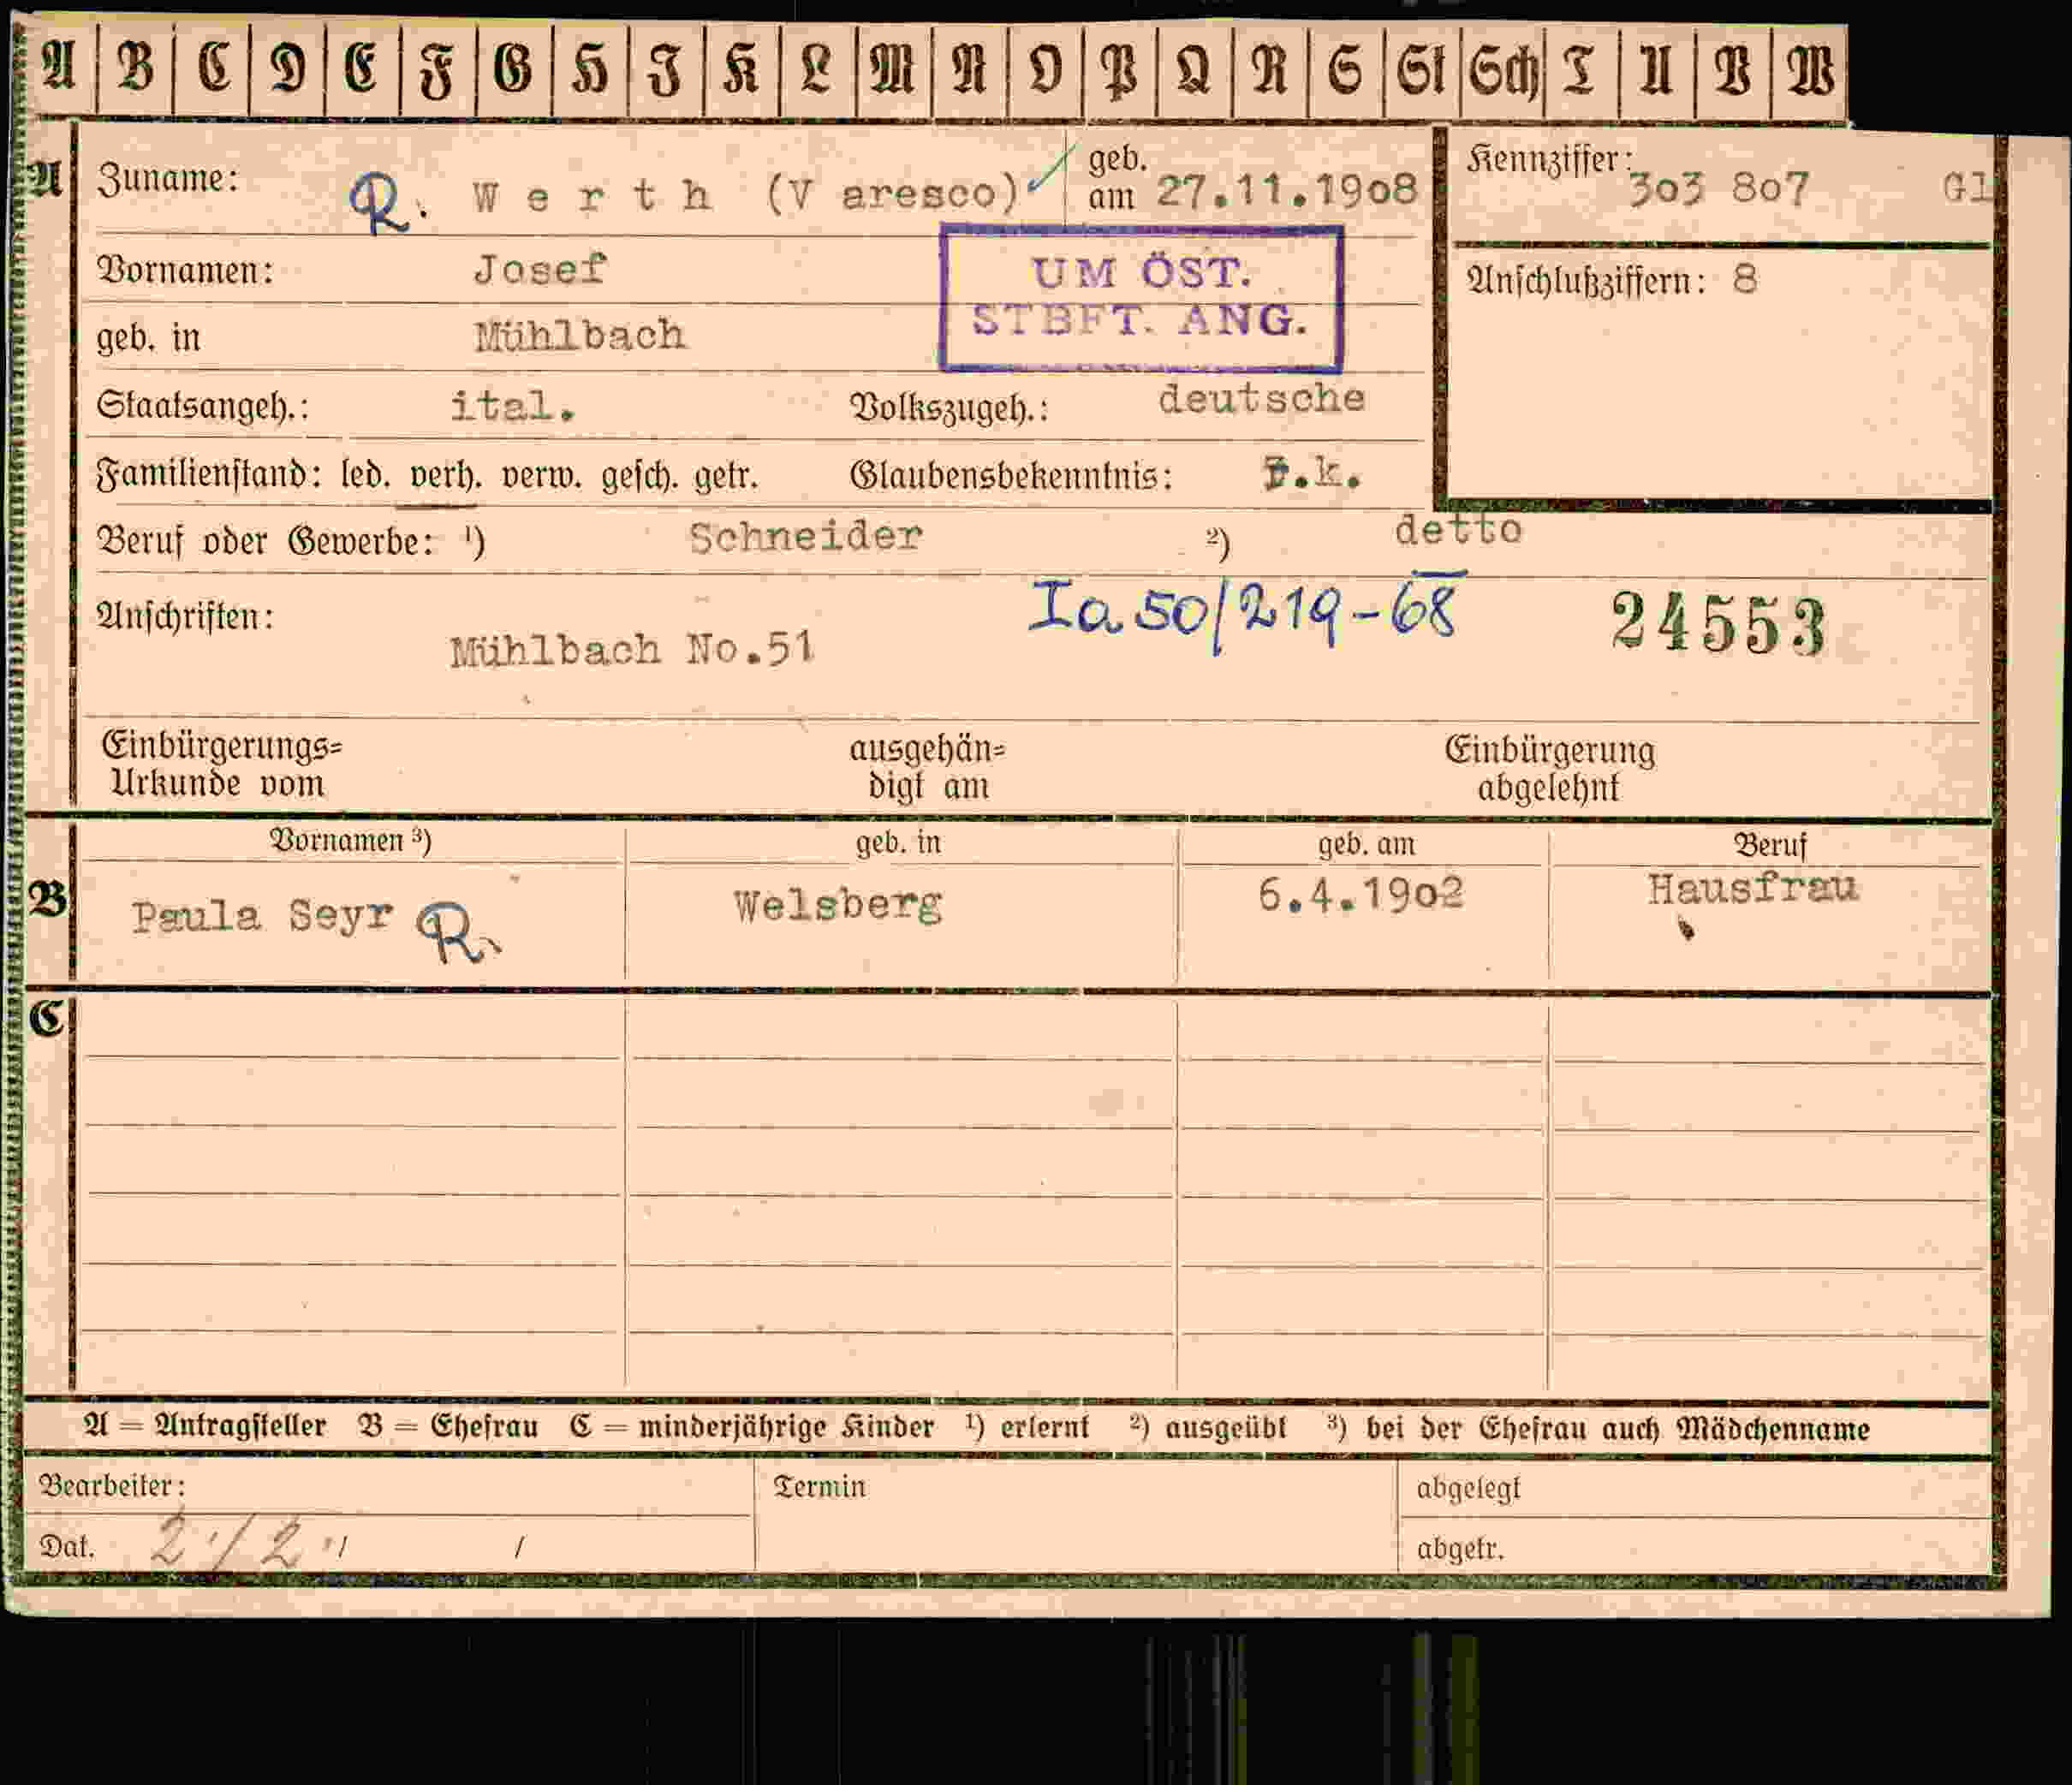 A B C D E F G H I K L M N O P Q R S St Sch T U V W
A Zuname: R. Werth (V aresco) ✓ geb. am 27.11.1908 Kennziffer: 303 807 Gl
Vornamen: Josef UM ÖST. Anschlußziffern: 8
geb. in Mühlbach STBFT. ANG.
Staatsangeh.: ital. Volkszugeh.: deutsche
Familienstand: led. verh. verw. gesch. getr. Glaubensbekenntnis: r.k.
Beruf oder Gewerbe: ¹) Schneider ²) detto
Anschriften: Mühlbach No.51 Ia 50/219-68 24553
Einbürgerungs= ausgehän= Einbürgerung
Urkunde vom digt am abgelehnt
Vornamen ³) geb. in geb. am Beruf
B Paula Seyr R. Welsberg 6.4.1902 Hausfrau
C
A = Antragsteller B = Ehefrau C = minderjährige Kinder ¹) erlernt ²) ausgeübt ³) bei der Ehefrau auch Mädchenname
Bearbeiter: Termin abgelegt
Dat. 2./2./ / abgetr.